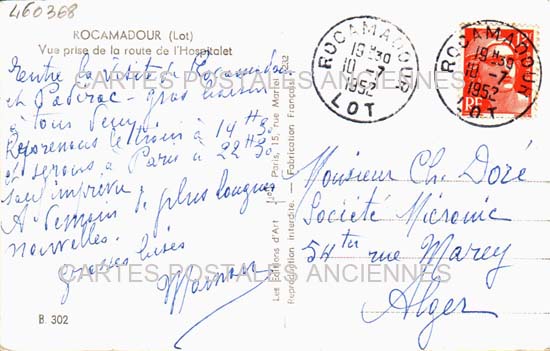 460368
ROCAMADOUR (Lot)
Vue prise de la route de l'Hospitalet
Entre la visite de Rocamadour
et Padirac - gros baisers
à tous deux
Reprenons le train à 14H30
et serons à Paris à 22H30
sauf imprévu
A demain de plus longues
nouvelles.
Grosses bises
B 302
Les Editions d'Art Paris, 15, rue Martel
Reproduction interdite. - Fabrication Française
ROCAMADOUR
19H30
10-7
1952
LOT
ROCAMADOUR
19H30
10-7
1952
LOT
RF
Monsieur Ch. Doré
Société Micronic
54ter rue Marey
Alger
CARTES POSTALES ANCIENNES
CARTES POSTALES ANCIENNES